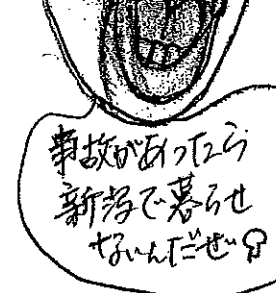 事故があったら
新潟で暮らせ
ないんだぜ!!